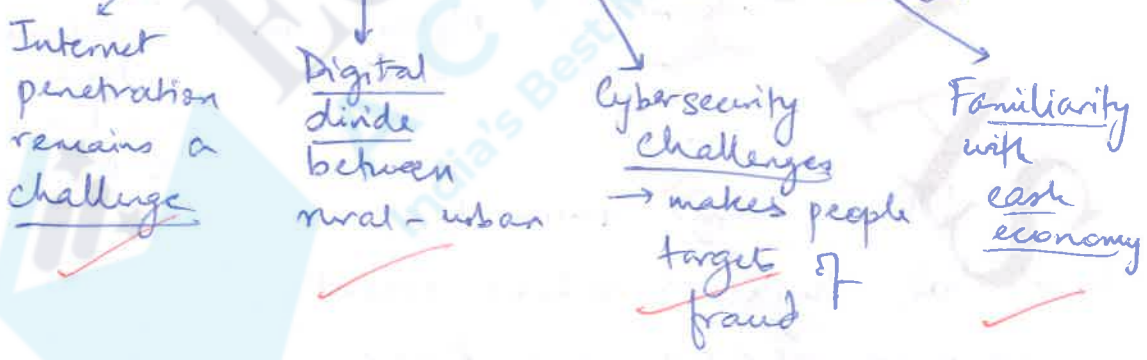 Internet
penetration
remains a
challenge
Digital
divide
between
rural-urban
Cybersecurity
challenges
→ makes people
targets of
fraud
Familiarity
with
cash
economy
India's Best